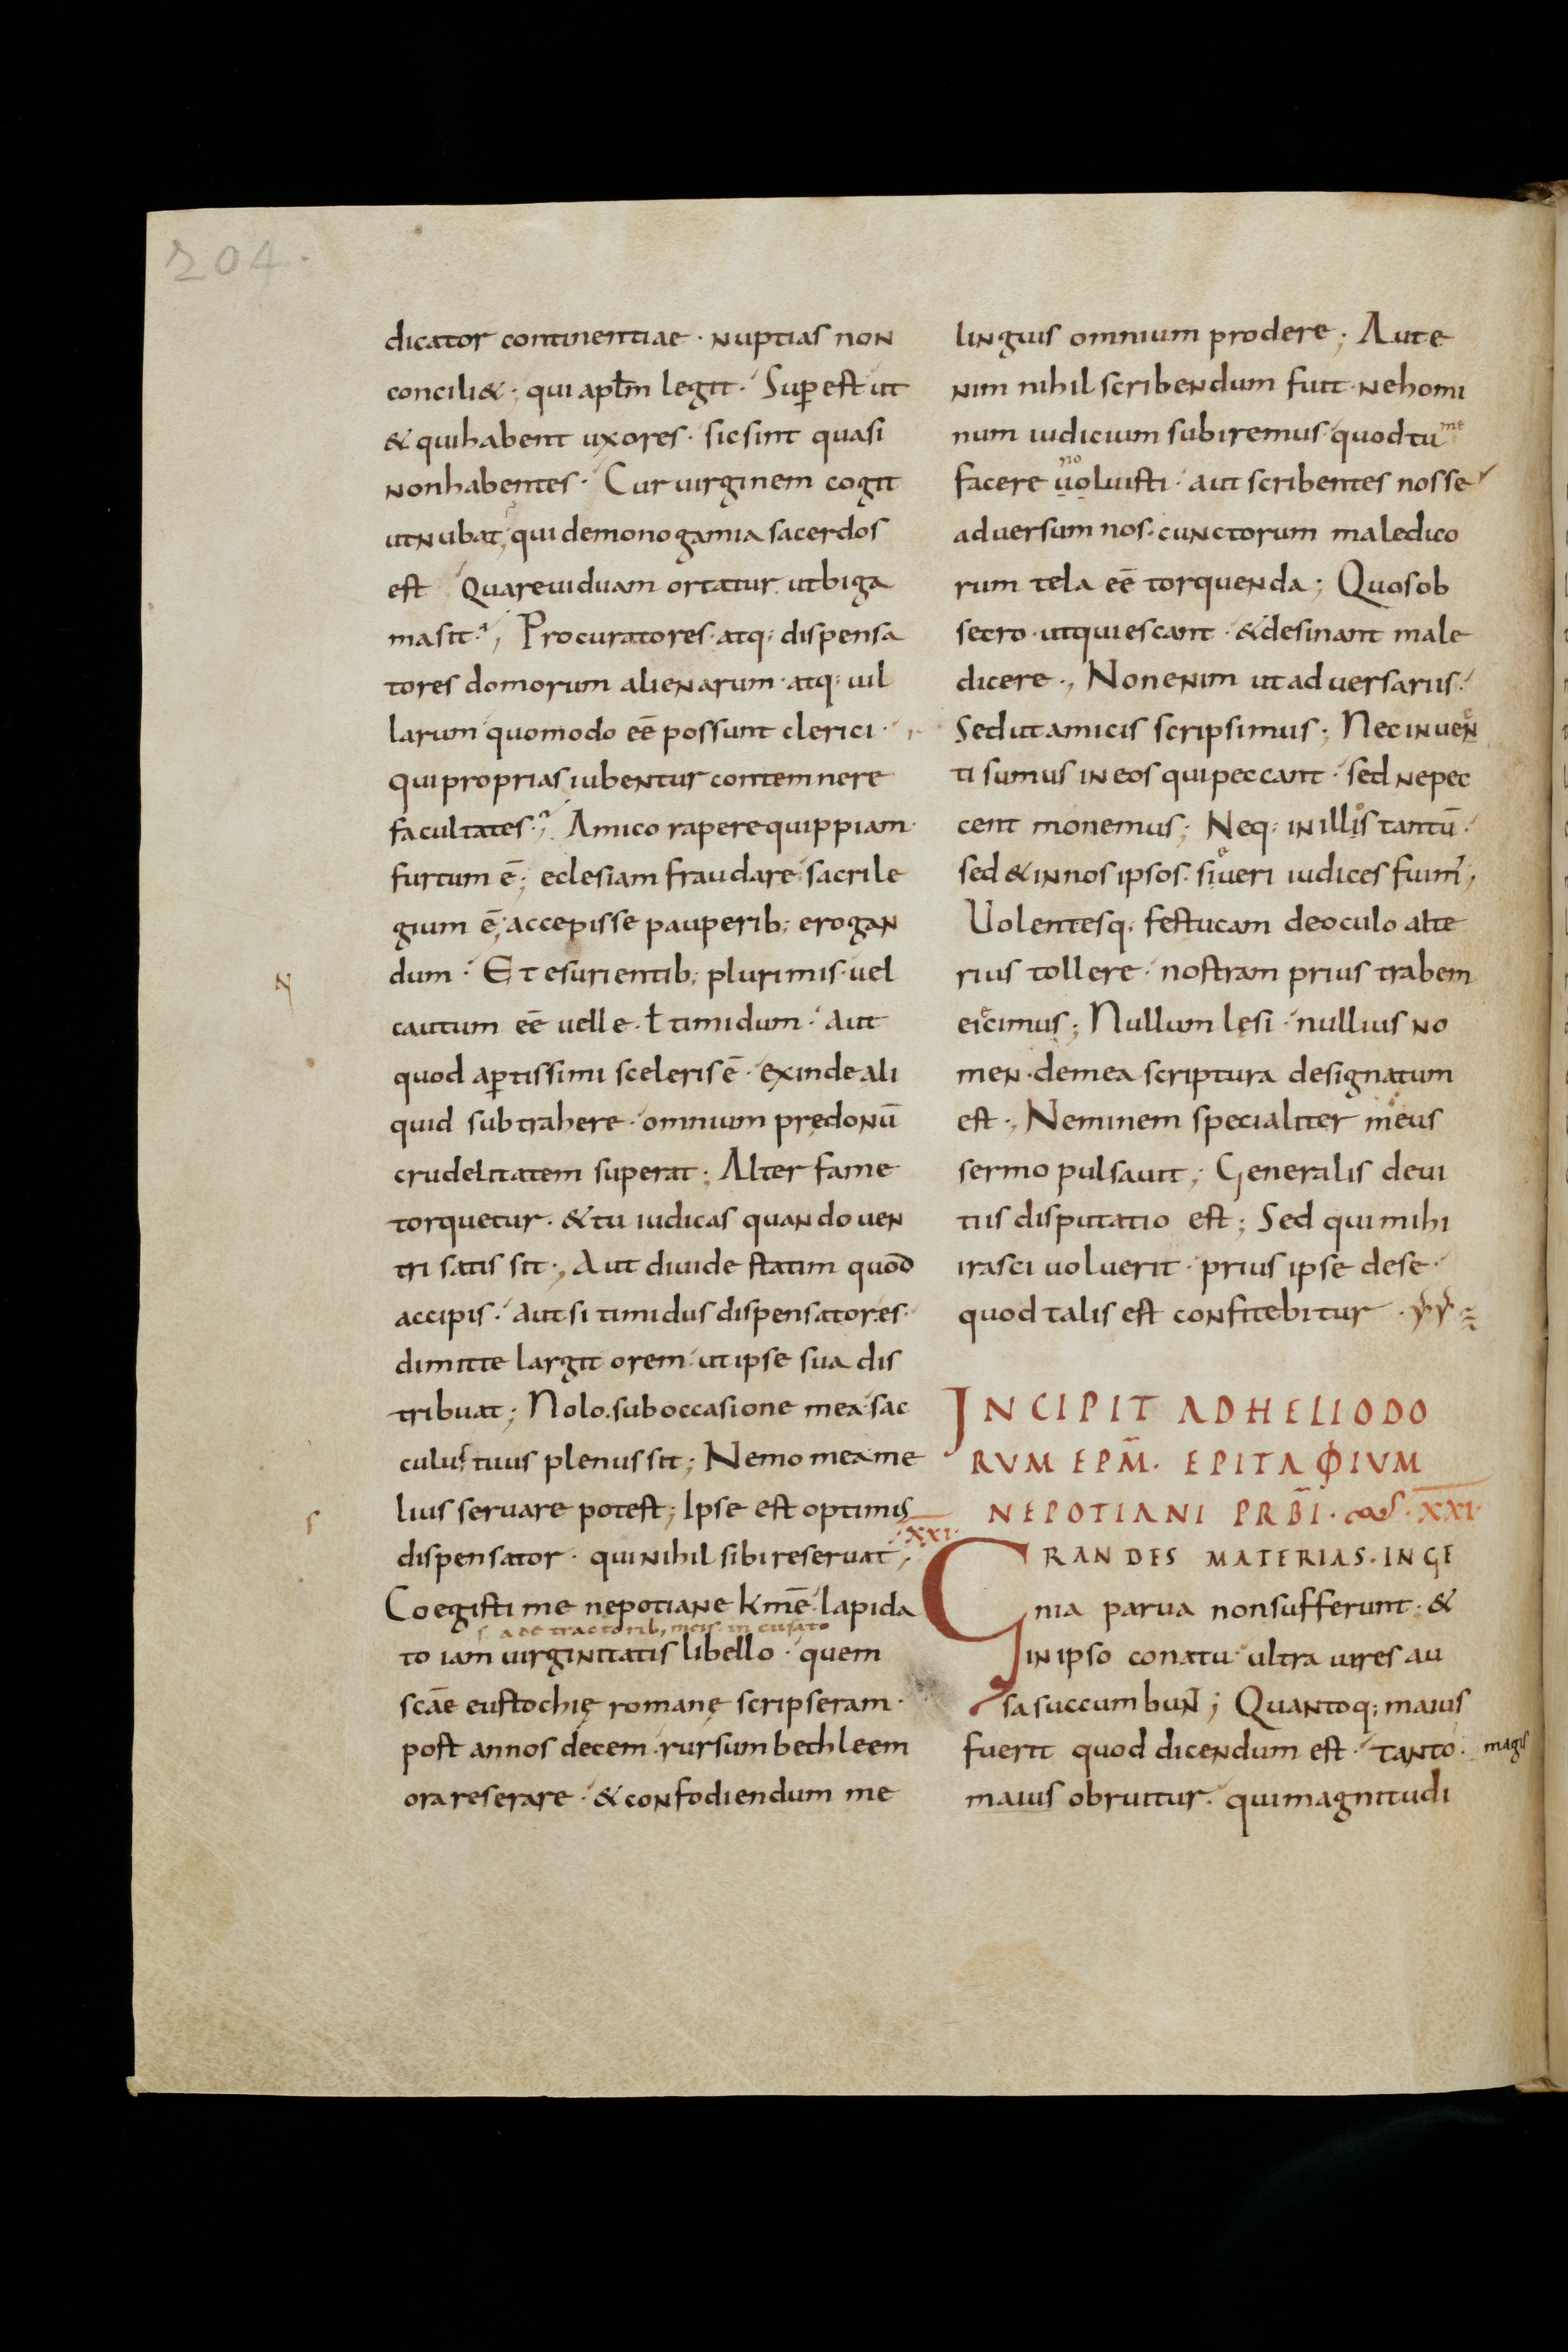 204.
dicator continentiae · nuptias non
concili& ; qui apłm legit · Sup̱ est ut
& qui habent uxores · sic sint quasi
non habentes · Cur uirginem cogit
ut nubat, qui de monogamia sacerdos
est Quare uiduam ortatur ut biga
ma sit ; Procuratores · atq; dispensa
tores domorum alienarum · atq; uil
larum quomodo eē possunt clerici ·
qui proprias iubentur contemnere
facultates ; Amico rapere quippiam ·
furtum ē ; eclesiam fraudare sacrile
gium ē ; accepisse pauperib; erogan
dum · Et esurientib; plurimis · uel
N
cautum eē uelle · ł timidum · aut
quod ap̱tissimi sceleris ē · exinde ali
quid subtrahere · omnium prędonū
crudelitatem superat ; Alter fame
torquetur · & tu iudicas quando uen
tri satis sit ·, Aut diuide statim quod
accipis · aut si timidus dispensator es ·
dimitte largitorem · ut ipse sua dis
tribuat ; Nolo · sub occasione mea sac
culus tuus plenus sit ; Nemo mea me
lius seruare potest ; Ipse est optimis
s
dispensator · qui nihil sibi reseruat ;
Coegisti me nepotiane kmē · lapida
s. a detractorib; meis in cusato
to iam uirginitatis libello · quem
scāe eustochię romanę scripseram ·
post annos decem · rursum bethleem
ora reserare · & confodiendum me
linguis omnium prodere ; Aut e
nim nihil scribendum fuit · ne homi
num iudicium subiremus · quod tu me
no
facere uoluisti · aut scribentes nosse
aduersum nos · cunctorum maledico
rum tela eē torquenda ; Quos ob
secro · ut quiescant · & desinant male
dicere ·, Non enim ut aduersariis ·
Sed ut amicis scripsimus ; Nec inuen
ti sumus in eos qui peccant · sed ne pec
cent monemus ; Neq; in illis tantū ·
sed & in nos ipsos · si ueri iudices fuim' ;
Uolentesq; festucam de oculo alte
rius tollere · nostram prius trabem
eicimus ; Nullum lęsi · nullius no
men · de mea scriptura designatum
est ·, Neminem specialiter meus
sermo pulsauit ; Generalis de ui
tiis disputatio est ; Sed qui mihi
irasci uoluerit · prius ipse de se ·
quod talis est confitebitur ·
INCIPIT AD HELIODO
RUM EPM̄ · EPITAΦIUM
NEPOTIANI PRB̄I · XXI ·
XXI ·
GRANDES MATERIAS · INGE
nia parua non sufferunt · &
in ipso conatu ultra uires au
sa succumbuN̄ ; Quantoq; maius
fuerit quod dicendum est · tanto · magis
maius obruitur · qui magnitudi